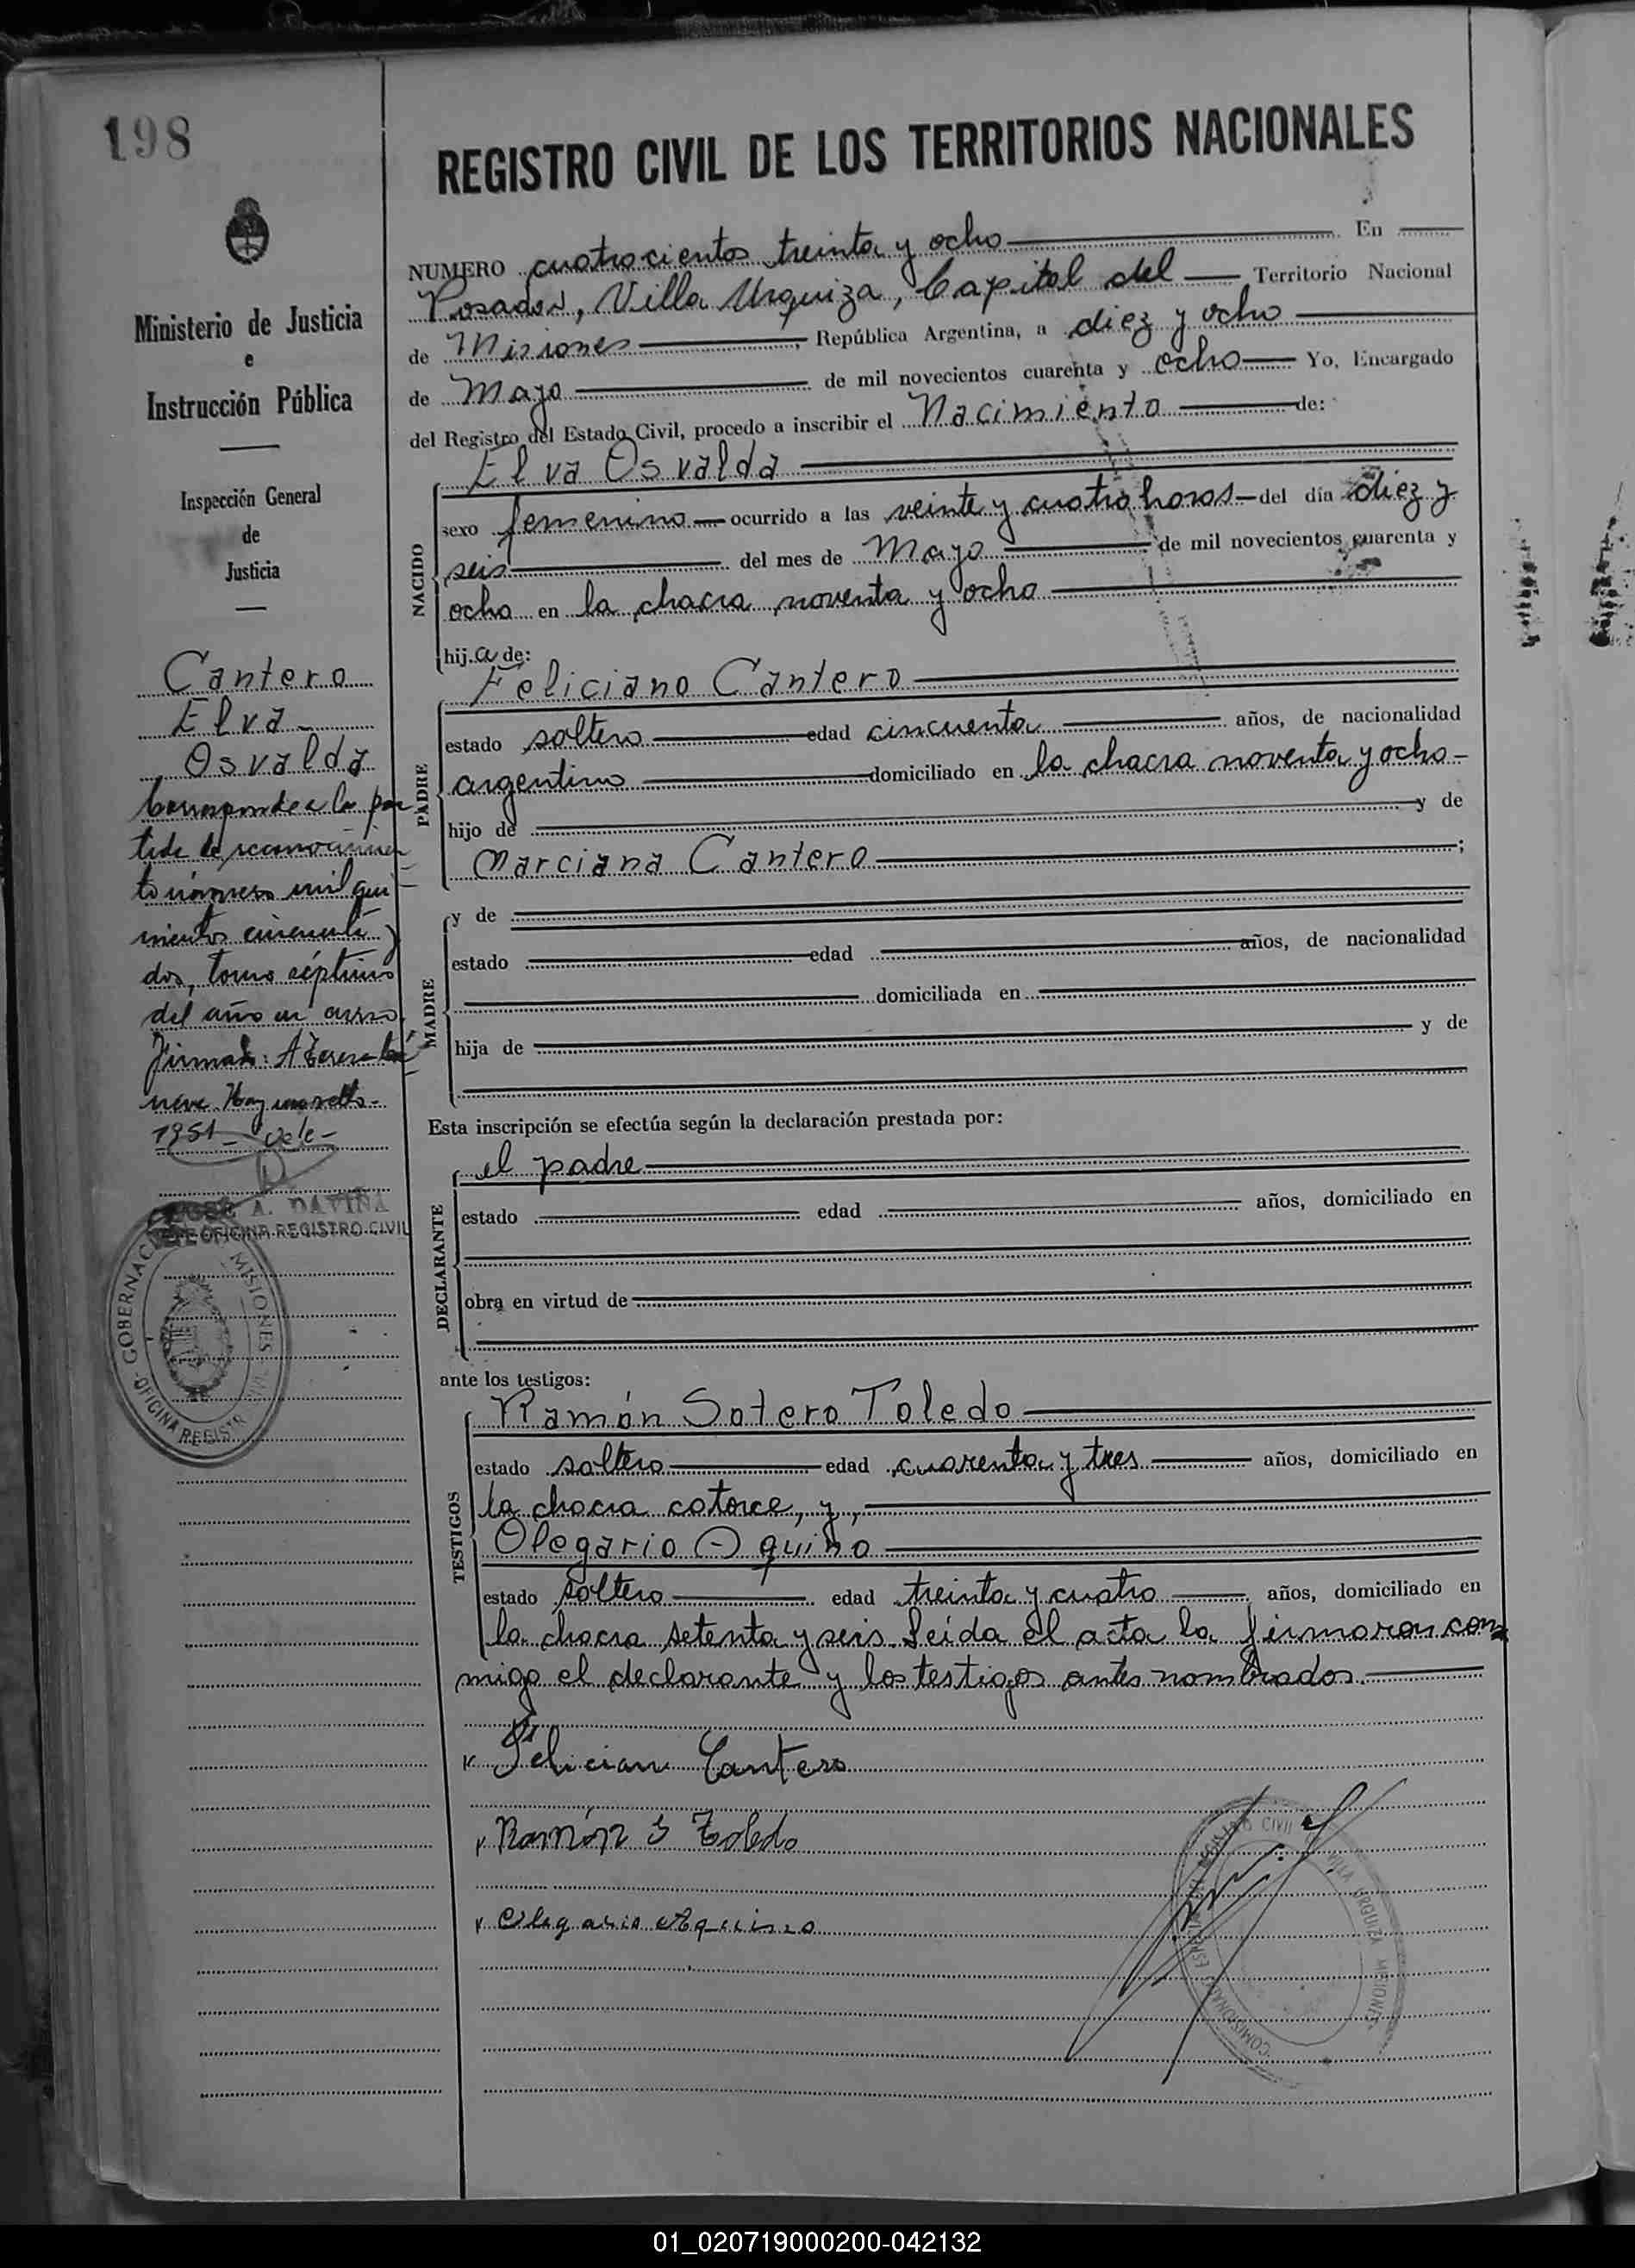 198
Ministerio de Justicia
e
Instrucción Pública
Inspección General
de
Justicia
Cantero
Elva
Osvalda
Corresponde a la par
tida de reconocimien
to número mil qui
nientos cincuenta y
dos, tomo séptimo
del año en curso.
Firmado: A
Hay un sello-
1951- Vale-
JOSE A. DAVIÑA
JEFE OFICINA REGISTRO CIVIL
GOBERNACION MISIONES
OFICINA REGISTRO
REGISTRO CIVIL DE LOS TERRITORIOS NACIONALES
NUMERO cuatrocientos treinta y ocho En
Posadas, Villa Urquiza, Capital del Territorio Nacional
de Misiones, República Argentina, a diez y ocho
de Mayo de mil novecientos cuarenta y ocho Yo, Encargado
del Registro del Estado Civil, procedo a inscribir el Nacimiento de:
Elva Osvalda
NACIDO
sexo femenino ocurrido a las veinte y cuatro horas del día diez y
seis del mes de Mayo de mil novecientos cuarenta y
ocho en la chacra noventa y ocho
hija de:
Feliciano Cantero
PADRE
estado soltero edad cincuenta años, de nacionalidad
argentino domiciliado en la chacra noventa y ocho-
hijo de y de
Marciana Cantero;
MADRE
y de
estado edad años, de nacionalidad
domiciliada en
hija de y de
Esta inscripción se efectúa según la declaración prestada por:
el padre
DECLARANTE
estado edad años, domiciliado en
obra en virtud de
ante los testigos:
Ramón Sotero Toledo
TESTIGOS
estado soltero edad cuarenta y tres años, domiciliado en
la chacra catorce, y,
Olegario Aquino
estado soltero edad treinta y cuatro años, domiciliado en
la chacra setenta y seis. Leída el acta la firmaron con
migo el declarante y los testigos antes nombrados.
Felician Cantero
Ramón S Toledo
Olegario Aquino
REGISTRO CIVIL VILLA URQUIZA MISIONES
01_020719000200-042132